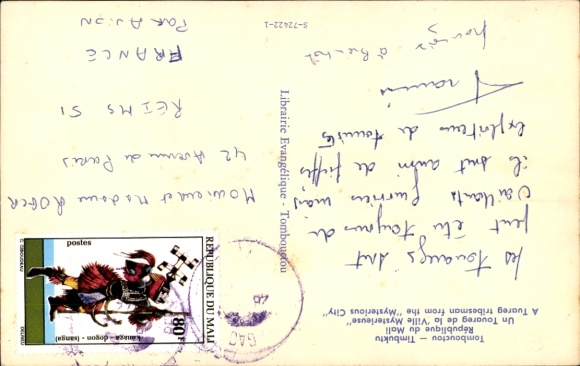 Tombouctou — Timbuktu
République du Mali
Un Touareg de la "Ville Mysterieuse"
A Tuareg tribesman from the "Mysterious City"
les touaregs sont
peut être toujours de
vaillants guerriers mais
ils sont aussi de fieffés
exploiteurs de touristes
Francis
à bientôt
Librairie Evangélique - Tombouctou
S-72422-1
REPUBLIQUE DU MALI
80F
postes
kanaga - dogon - (sanga)
DELRIEU
GAO
Monsieur et Madame ROGER
42 Avenue de Paris
REIMS 51
FRANCE
PAR AVION